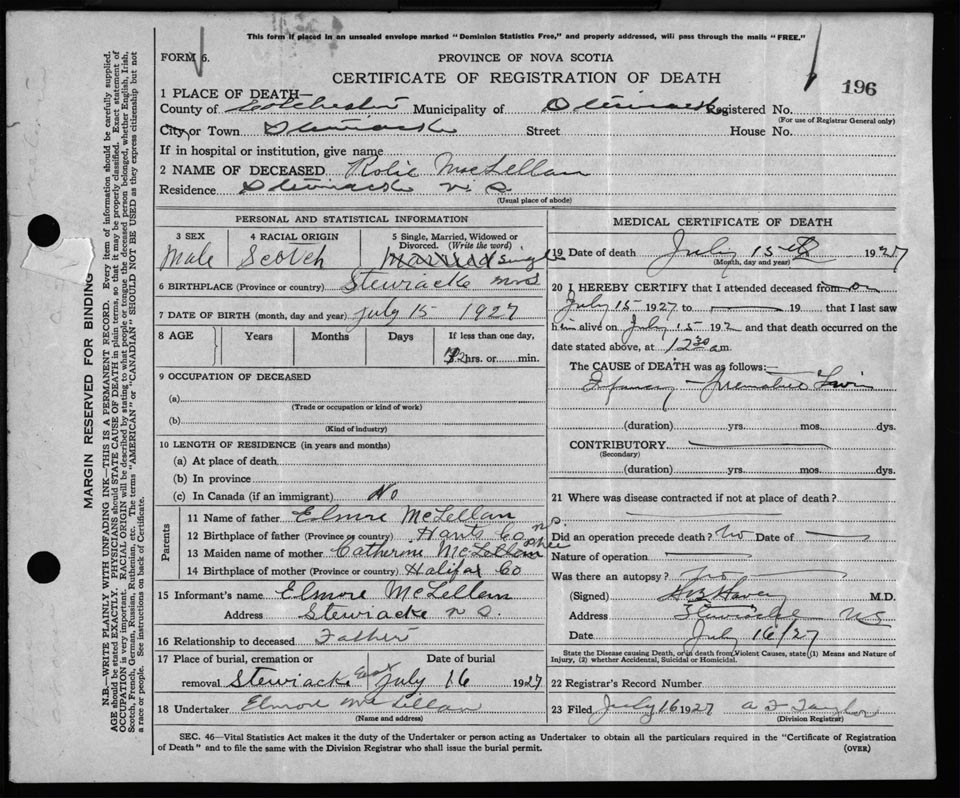 This form if placed in an unsealed envelope marked "Dominion Statistics Free," and properly addressed, will pass through the mails "FREE."
FORM 6.
PROVINCE OF NOVA SCOTIA
CERTIFICATE OF REGISTRATION OF DEATH
196
1 PLACE OF DEATH—
County of Colchester Municipality of Stewiacke Registered No.
(For use of Registrar General only)
City or Town Stewiacke Street House No.
If in hospital or institution, give name
2 NAME OF DECEASED Rolie MacLellan
Residence Stewiacke N. S.
(Usual place of abode)
PERSONAL AND STATISTICAL INFORMATION
3 SEX 4 RACIAL ORIGIN 5 Single, Married, Widowed or Divorced. (Write the word)
Male Scotch Married Single
6 BIRTHPLACE (Province or country) Stewiacke
7 DATE OF BIRTH (month, day and year) July 15 1927
8 AGE Years Months Days If less than one day,
hrs. or min.
9 OCCUPATION OF DECEASED
(a)
(Trade or occupation or kind of work)
(b)
(Kind of industry)
10 LENGTH OF RESIDENCE (in years and months)
(a) At place of death
(b) In province
(c) In Canada (if an immigrant) No
Parents
11 Name of father Elmore McLellan
12 Birthplace of father (Province or country) Hants Co N.S.
13 Maiden name of mother Catherine McLellan
14 Birthplace of mother (Province or country) Halifax Co
15 Informant's name Elmore McLellan
Address Stewiacke N S.
16 Relationship to deceased Father
17 Place of burial, cremation or removal Stewiacke East Date of burial July 16 1927
18 Undertaker Elmore McLellan
(Name and address)
MEDICAL CERTIFICATE OF DEATH
19 Date of death July 15th 1927
(Month, day and year)
20 I HEREBY CERTIFY that I attended deceased from on
July 15 1927 to 19 that I last saw
him alive on July 15 192 and that death occurred on
date stated above, at 12 30 am.
The CAUSE of DEATH was as follows:
Infancy — Premature Twin
(duration) yrs. mos. dys.
CONTRIBUTORY
(Secondary)
(duration) yrs. mos. dys.
21 Where was disease contracted if not at place of death?
Did an operation precede death? No Date of
Nature of operation
Was there an autopsy? No
(Signed) M.D.
Address Stewiacke NS
Date July 16/27
State the Disease causing Death, or in death from Violent Causes, state (1) Means and Nature of
Injury, (2) whether Accidental, Suicidal or Homicidal.
22 Registrar's Record Number
23 Filed July 16 1927 A F Taylor
(Division Registrar)
SEC. 46—Vital Statistics Act makes it the duty of the Undertaker or person acting as Undertaker to obtain all the particulars required in the "Certificate of Registration
of Death" and to file the same with the Division Registrar who shall issue the burial permit. (OVER)
MARGIN RESERVED FOR BINDING
N.B.—WRITE PLAINLY WITH UNFADING INK—THIS IS A PERMANENT RECORD. Every item of information should be carefully supplied.
AGE should be stated EXACTLY. PHYSICIANS should STATE CAUSE OF DEATH in plain terms, so that it may be properly classified. Exact statement of
OCCUPATION is very important. RACIAL ORIGIN will be described by stating to what people or tongue the deceased person belonged, whether English, Irish,
Scotch, French, German, Russian, Ruthenian, etc. The terms "AMERICAN" or "CANADIAN" SHOULD NOT BE USED as they express citizenship but not
a race or people. See instructions on back of Certificate.